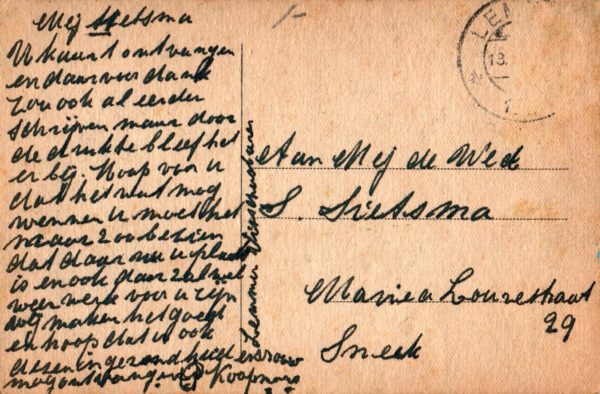 Mej Sietsma
U kaart ontvangen
en daarvoor dank
zou ook al eerder
schrijven maar door
de drukte bleef het
er bij. Hoop voor u
dat het wat mog
wennen u moet het
maar zoo bezien
dat daar nu u plaats
is en ook daar zal wel
weer werk voor u zijn
wij maken het goed
en hoop dat u ook
deze in gezondheid
mog ontvangen
Koopmans
en vrouw
Lemmer
Aan Mej de Wed
S. Sietsma
Maria Louisestraat
29
Sneek
LEM
13.
1